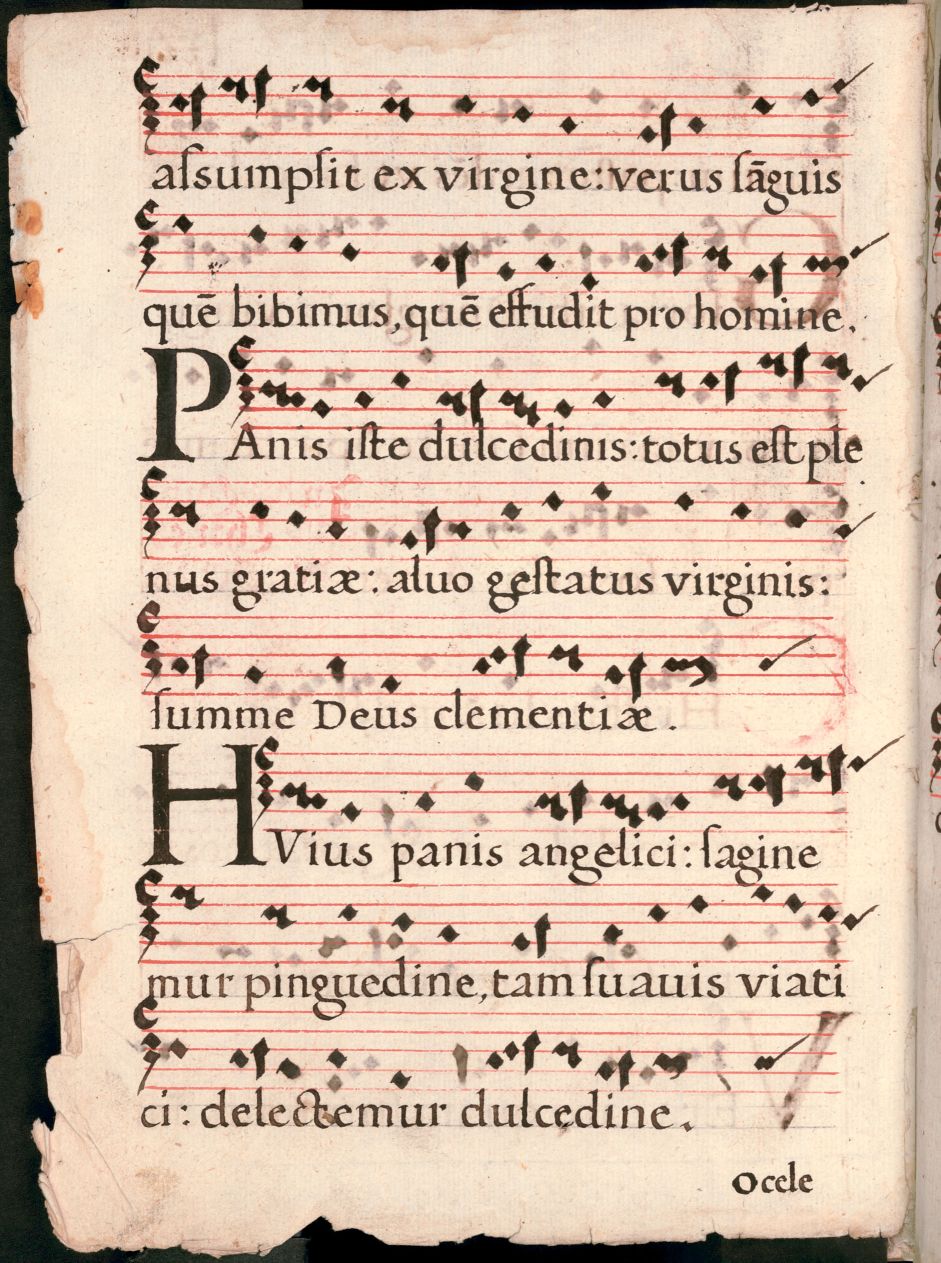 aſsumpſit ex virgine: verus ſãguis
quē bibimus, quē effudit pro homine.
PAnis iſte dulcedinis: totus eſt ple
nus gratiæ: aluo geſtatus virginis:
ſumme Deus clementiæ.
HVius panis angelici: ſagine
mur pinguedine, tam ſuauis viati
ci: delectemur dulcedine.
Ocele